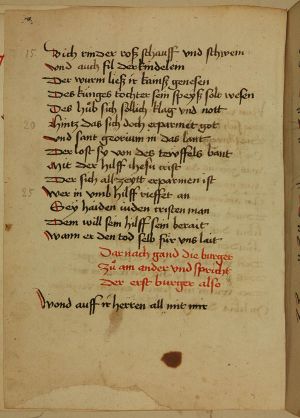 15 Vich rinder roß schauff vnd schwein
Vnd auch fil der kindelein
Der wurm ließ ir kainß genesen
Des kunges tochter sein speyß solt wesen
Des hůb sich sölich klag vnd nott
20 Hintz das sich doch erparmet got
Vnd sant georium in das lant
Der lost sy von des teyffels bant
Mit der hilff ihesu crist
Der sich all zeytt erparmen ist
25 Wer in vmb hilff rieffet an
Eey haiden iuden cristen man
Dem will sein hilff sein berait
Wann er den tod selb für vns lait
Dar nach gand die burger
Zů am ander vnd spricht
Der erst burger also
Wond auff ir herren all mit mir